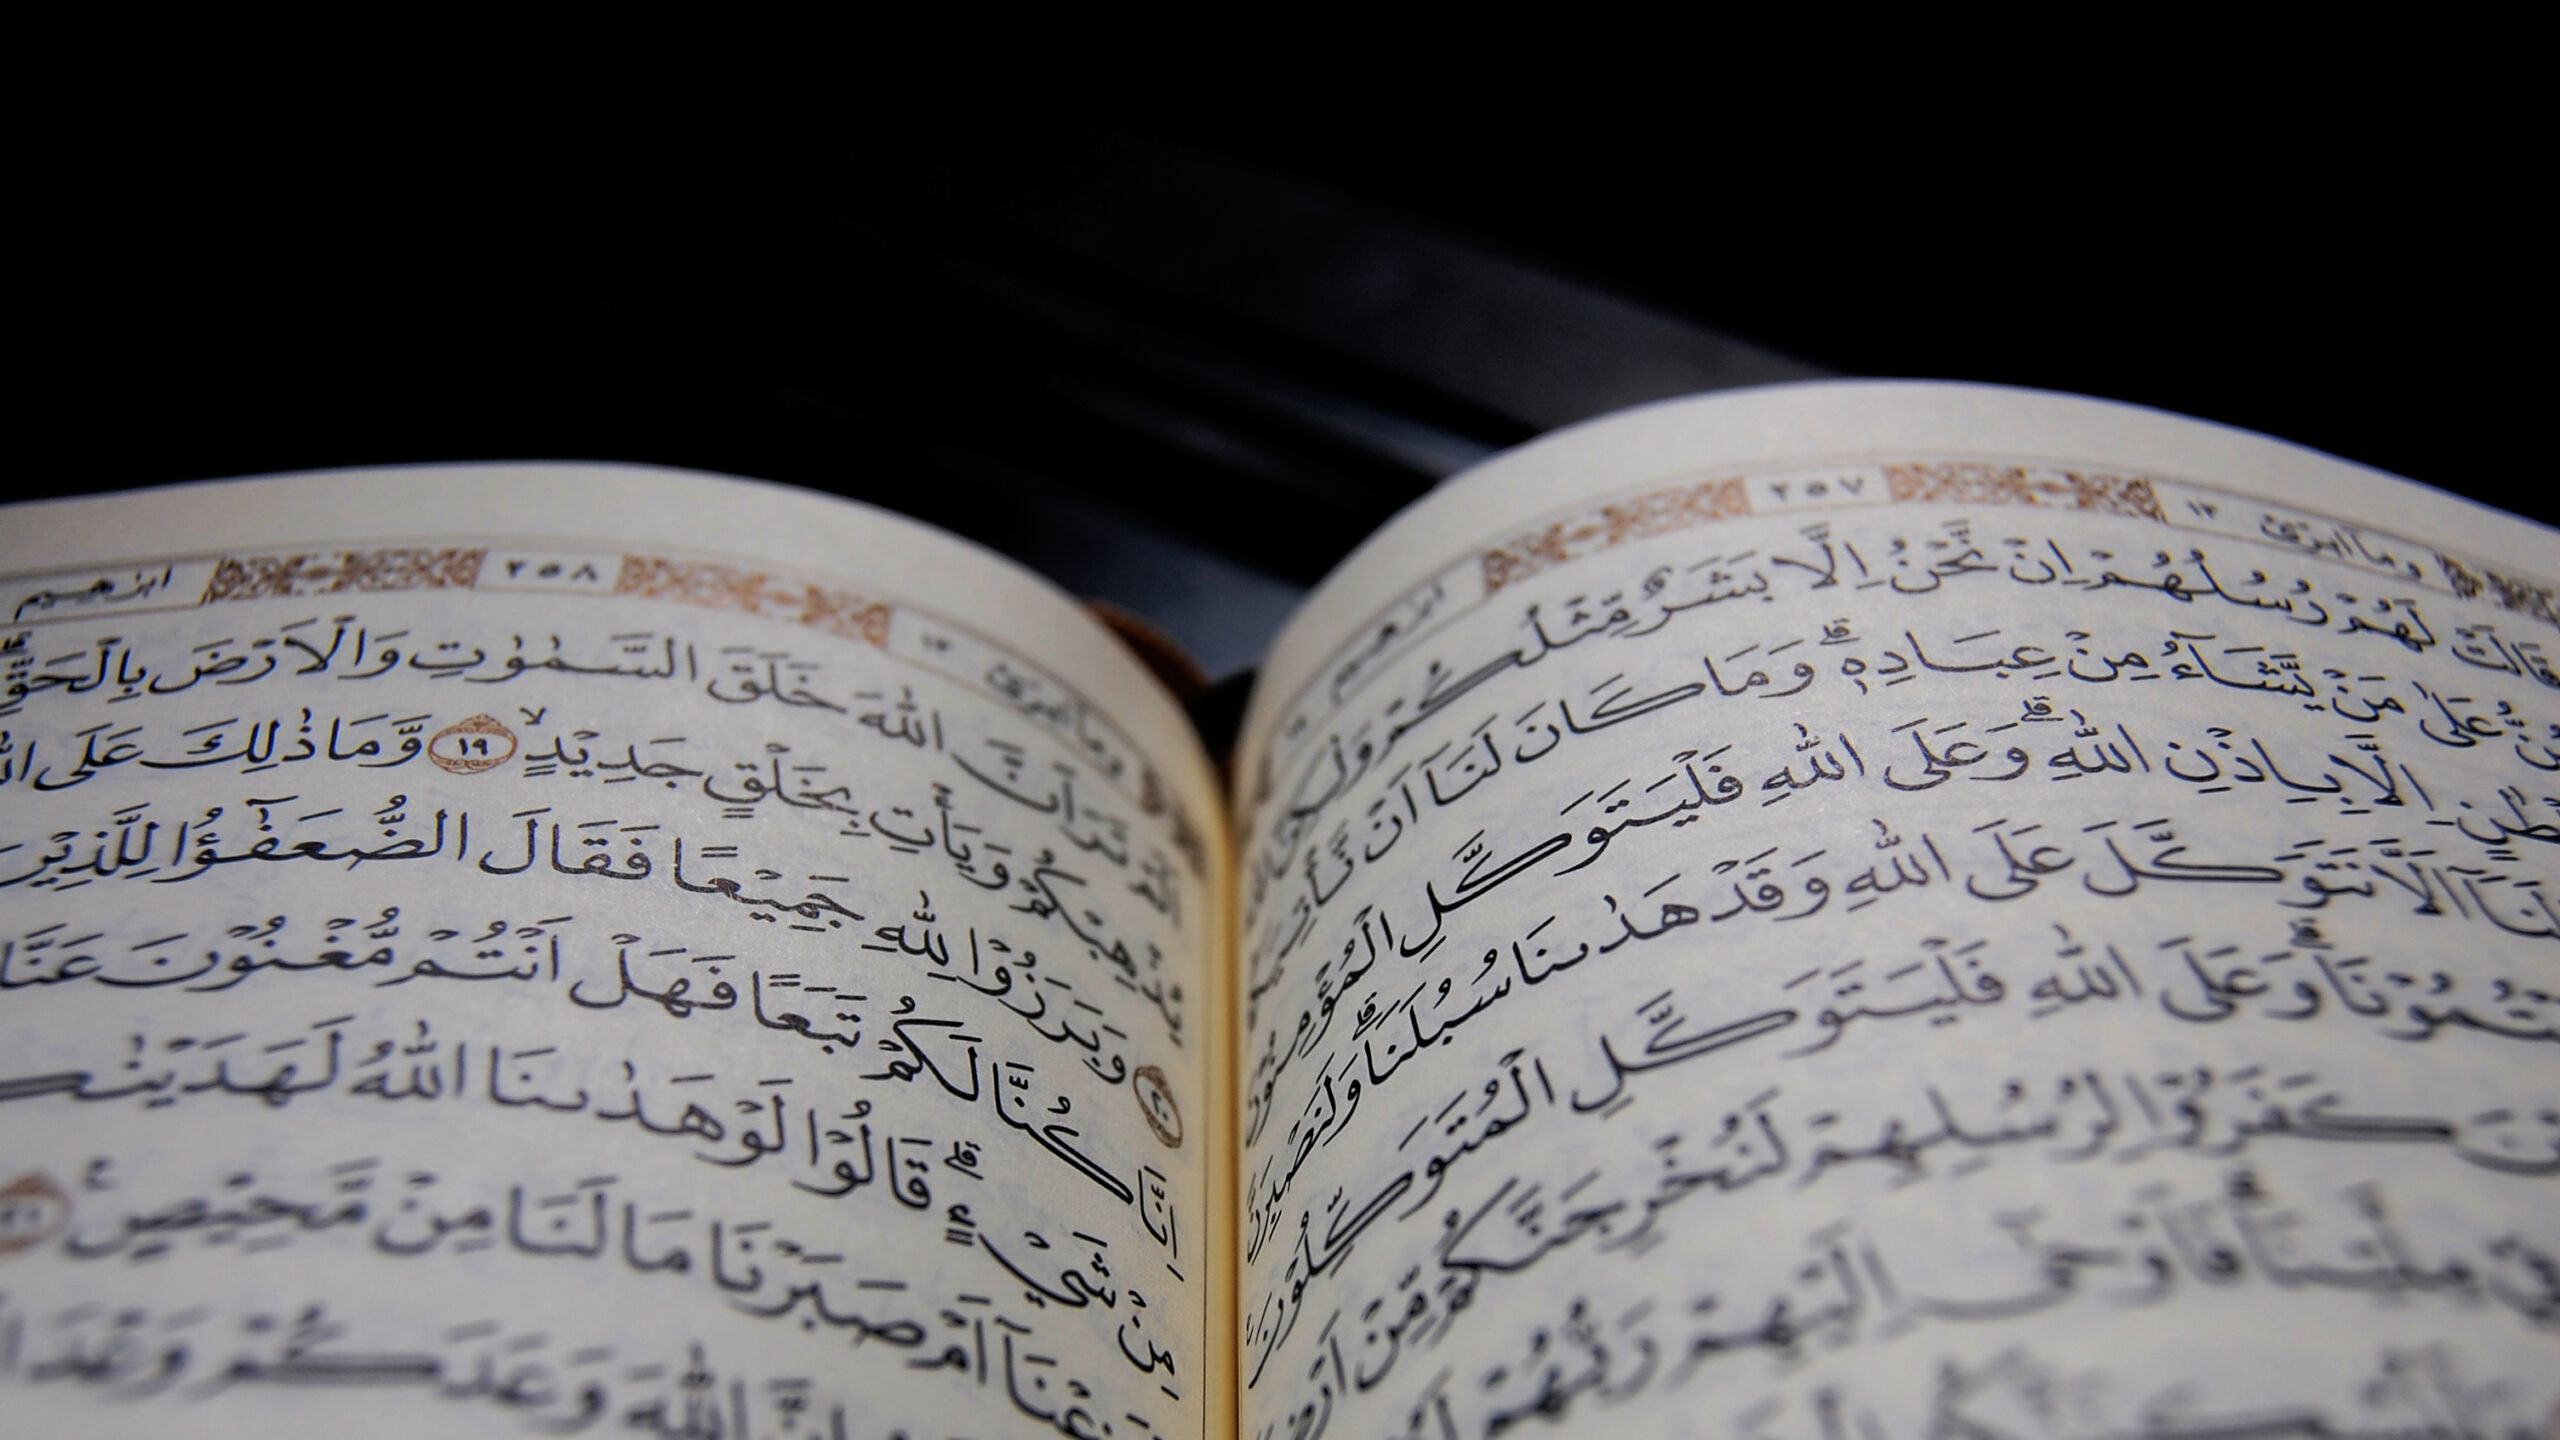 وما ابرئ ١٣
٢٥٧
ابرٰهيم
قَالَتْ لَهُمْ رُسُلُهُمْ اِنْ نَّحْنُ اِلَّا بَشَرٌ مِّثْلُكُمْ وَلٰكِنَّ
عَلٰى مَنْ يَّشَاۤءُ مِنْ عِبَادِهٖۗ وَمَا كَانَ لَنَآ اَنْ نَّأْتِيَكُمْ
اِلَّا بِاِذْنِ اللّٰهِ ۗوَعَلَى اللّٰهِ فَلْيَتَوَكَّلِ الْمُؤْمِنُوْنَ
لَنَآ اَلَّا نَتَوَكَّلَ عَلَى اللّٰهِ وَقَدْ هَدٰىنَا سُبُلَنَاۗ وَلَنَصْبِرَنَّ
وَعَلَى اللّٰهِ فَلْيَتَوَكَّلِ الْمُتَوَكِّلُوْنَ
كَفَرُوْا لِرُسُلِهِمْ لَنُخْرِجَنَّكُمْ مِّنْ اَرْضِ
مِلَّتِنَاۗ فَاَوْحٰٓى اِلَيْهِمْ رَبُّهُمْ
وما ابرئ ١٣
٢٥٨
ابرٰهيم
اَلَمْ تَرَ اَنَّ اللّٰهَ خَلَقَ السَّمٰوٰتِ وَالْاَرْضَ بِالْحَقِّ
يُذْهِبْكُمْ وَيَأْتِ بِخَلْقٍ جَدِيْدٍۙ ١٩ وَّمَا ذٰلِكَ عَلَى
٢٠ وَبَرَزُوْا لِلّٰهِ جَمِيْعًا فَقَالَ الضُّعَفٰۤؤُا لِلَّذِيْنَ
اِنَّا كُنَّا لَكُمْ تَبَعًا فَهَلْ اَنْتُمْ مُّغْنُوْنَ عَنَّا
مِنْ شَيْءٍ ۗقَالُوْا لَوْ هَدٰىنَا اللّٰهُ لَهَدَيْنٰكُمْ
اَجَزِعْنَآ اَمْ صَبَرْنَا مَا لَنَا مِنْ مَّحِيْصٍ ٢١
اِنَّ اللّٰهَ وَعَدَكُمْ وَعْدَ